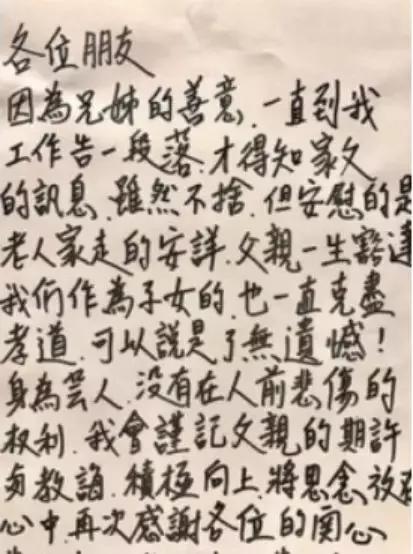 各位朋友
因為兄姊的善意.一直到我
工作告一段落.才得知家父
的訊息.雖然不捨.但安慰的是
老人家走的安詳.父親一生豁達
我们作為子女的.也一直克盡
孝道.可以說是了無遺憾!
身為芸人.没有在人前悲傷的
权利.我會謹記父親的期許
与教誨.積極向上.將思念放在
心中.再次感謝各位的関心